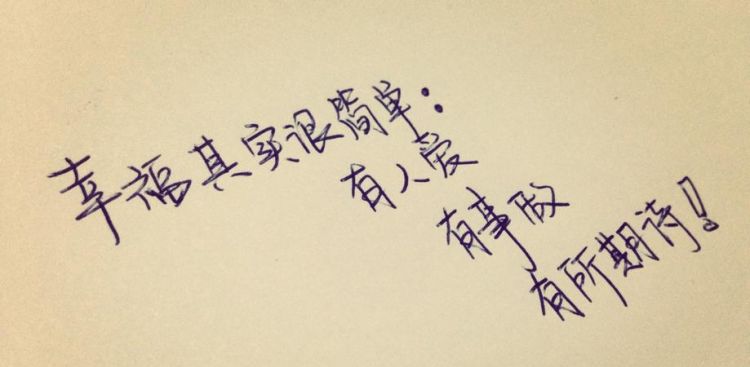 幸福其实很简单：
有人爱
有事做
有所期待！